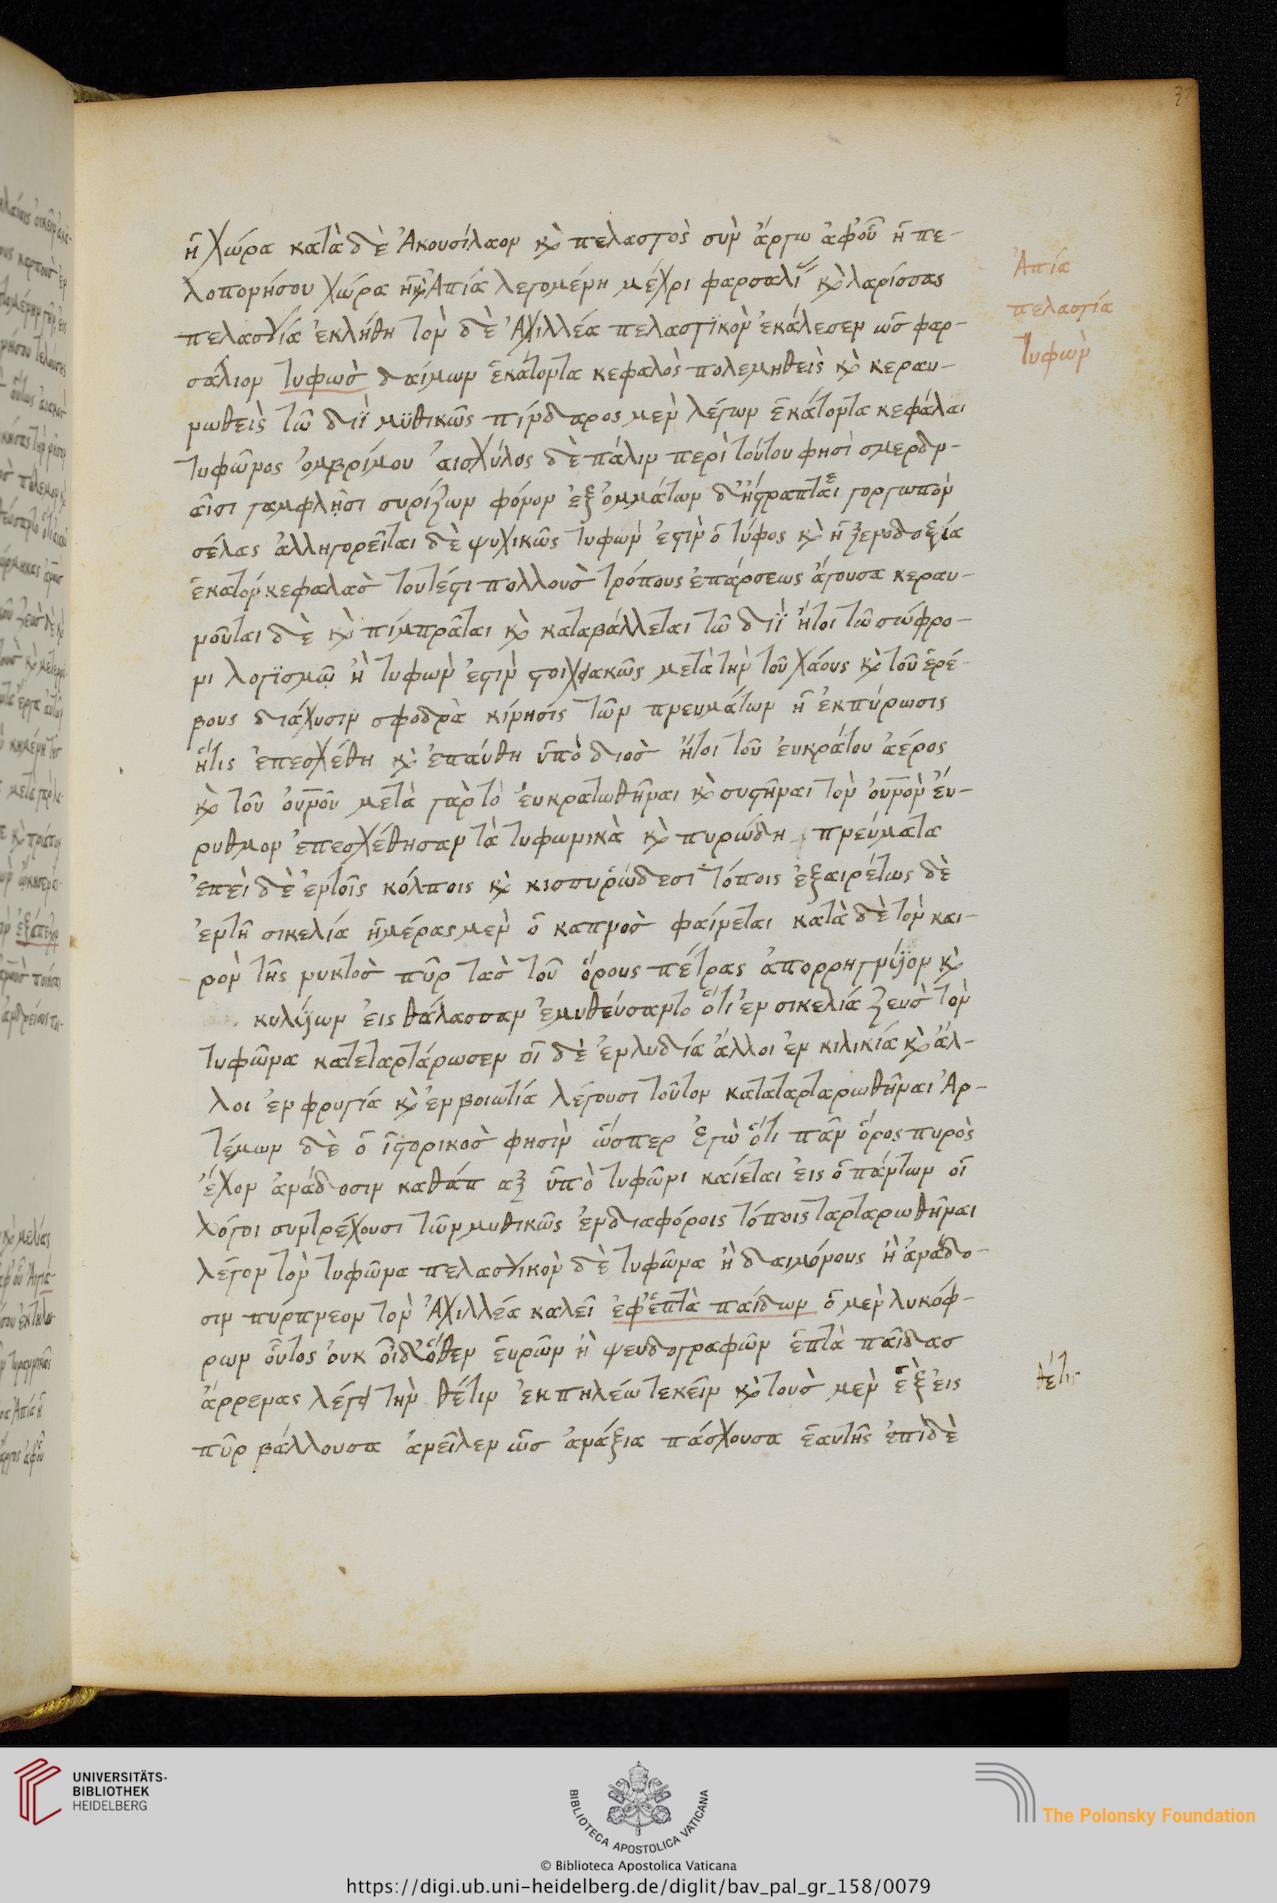 37
ἡ χώρα κατὰ δὲ Ἀκουσίλαον κὸ πελασγὸς σὺν ἄργω ἀφοὗ ἡ πε-
λοπονήσου χώρα ἡ κὸ Ἀπία λεγομένη μέχρι φαρσαλί κὸ λαρίσσας
πελασγία ἐκλήθη τὸν δὲ Ἀχιλλέα πελασγικὸν ἐκάλεσεν ὡσ φαρ-
σάλιον τυφωσ δαίμων ἑκάτοντα κεφαλὸς πολεμηθεὶς κὸ κεραυ-
νωθεὶς τῶ διῒ μϋθικῶς πίνδαρος μὲν λέγων ἑκάτοντα κεφάλαι
τυφῶνος ὀμβρίμου ἀισχύλος δὲ πάλιν περὶ τούτου φησὶ σμερδν-
αῖσι γαμφλησι συρίζων φόνον ἐξ ὀμμάτων δ' ἠςραπται γοργωπὸν
σέλας ἀλληγορεῖται δὲ ψυχικῶς τυφων ἐςὶν ὁ τύφος κὸ ἡ ξενοδοξία
ἑκατόνκεφαλασ τουτέςι πολλουσ τρόπους ἐπάρσεως ἄγουσα κεραυ-
νοῦται δὲ κὸ πίμπρᾶται κὸ καταβάλλεται τῶ διῒ ἤτοι τῶ σώφρο-
νι λογϊσμῶ ἢ τυφων ἐςὶν ςοιχειακῶς μετὰ τὴν τοῦ χάους κὸ τοῦ ἐρέ-
βους διάχυσιν σφοδρὰ κίνησίς τῶν πνευμάτων ἡ ἐκπύρωσις
ἥτις ἐπεσχέθη κὸ ἐπαύθη ὑπὸ διοσ ἤτοι τοῦ ἐυκράτου ἀέρος
κὸ τοῦ ὀυνοῦ μετὰ γὰρ τὸ ἐυκρατωθῆναι κὸ συςῆναι τὸν ὀυνὸν ἔυ-
ρυθμον ἐπεσχέθησαν τὰ τυφωνικὰ κὸ πυρώδη πνεύματα
ἐπεὶ δὲ ἐντοῖς κόλποις κὸ κισπυρώδεσι τόποις ἐξαιρέτως δὲ
ἐντῆ σικελία ἡμέρας μὲν ὁ καπνοσ φαίνεται κατὰ δὲ τὸν και-
ρὸν τῆς νυκτοσ πῦρ τασ τοῦ ὄρους πέτρας ἀπορρηγνύον κὸ
κυλίων ἐις θάλασσαν ἐμυθεύσαντο ὅτι ἐν σικελία ζευσ τὸν
τυφῶνα κατεταρτάρωσεν οἱ δὲ ἐν λυδία ἄλλοι ἐν κιλικία κὸ ἄλ-
λοι ἐν φρυγία κὸ ἐν βοιωτία λέγουσι τοῦτον καταταρταρωθῆναι Ἀρ-
τέμων δὲ ὁ ἱςορικοσ φησὶν ὥσπερ ἐγὼ ὅτι πᾶν ὄρος πυρὸς
ἔχον ἀνάδοσιν καθάπ αξ ὑπὸ τυφῶνι καίεται ἐις ὁ πάντων οἱ
λόγοι συντρέχουσι τῶν μυθικῶς ἐνδιαφόροις τόποις ταρταρωθῆναι
λέγον τὸν τυφῶνα πελασγικὸν δὲ τυφῶνα ἢ δαιμόνους ἢ ἀνάδο-
σιν πύρπνεον τὸν Ἀχιλλέα καλεῖ ἐφ' ἑπτὰ παίδων ὁ μὲν λυκόφ-
ρων οὗτος ὀυκ οἶδ' ὅθεν ἑυρῶν ἢ ψευδογραφῶν ἑπτὰ παῖδασ
ἄρρενας λέγει τὴν θέτιν ἐκπηλέω τεκεῖν κὸ τουσ μὲν ἓξ ἐις
πῦρ βάλλουσα ἀνεῖλεν ὡσ ἀνάξια πάσχουσα ἑαυτῆς ἐπὶ δὲ
Ἀπία
πελασγία
Τυφων
θέτις
UNIVERSITÄTS-
BIBLIOTHEK
HEIDELBERG
BIBLIOTECA APOSTOLICA VATICANA
The Polonsky Foundation
© Biblioteca Apostolica Vaticana
https://digi.ub.uni-heidelberg.de/diglit/bav_pal_gr_158/0079